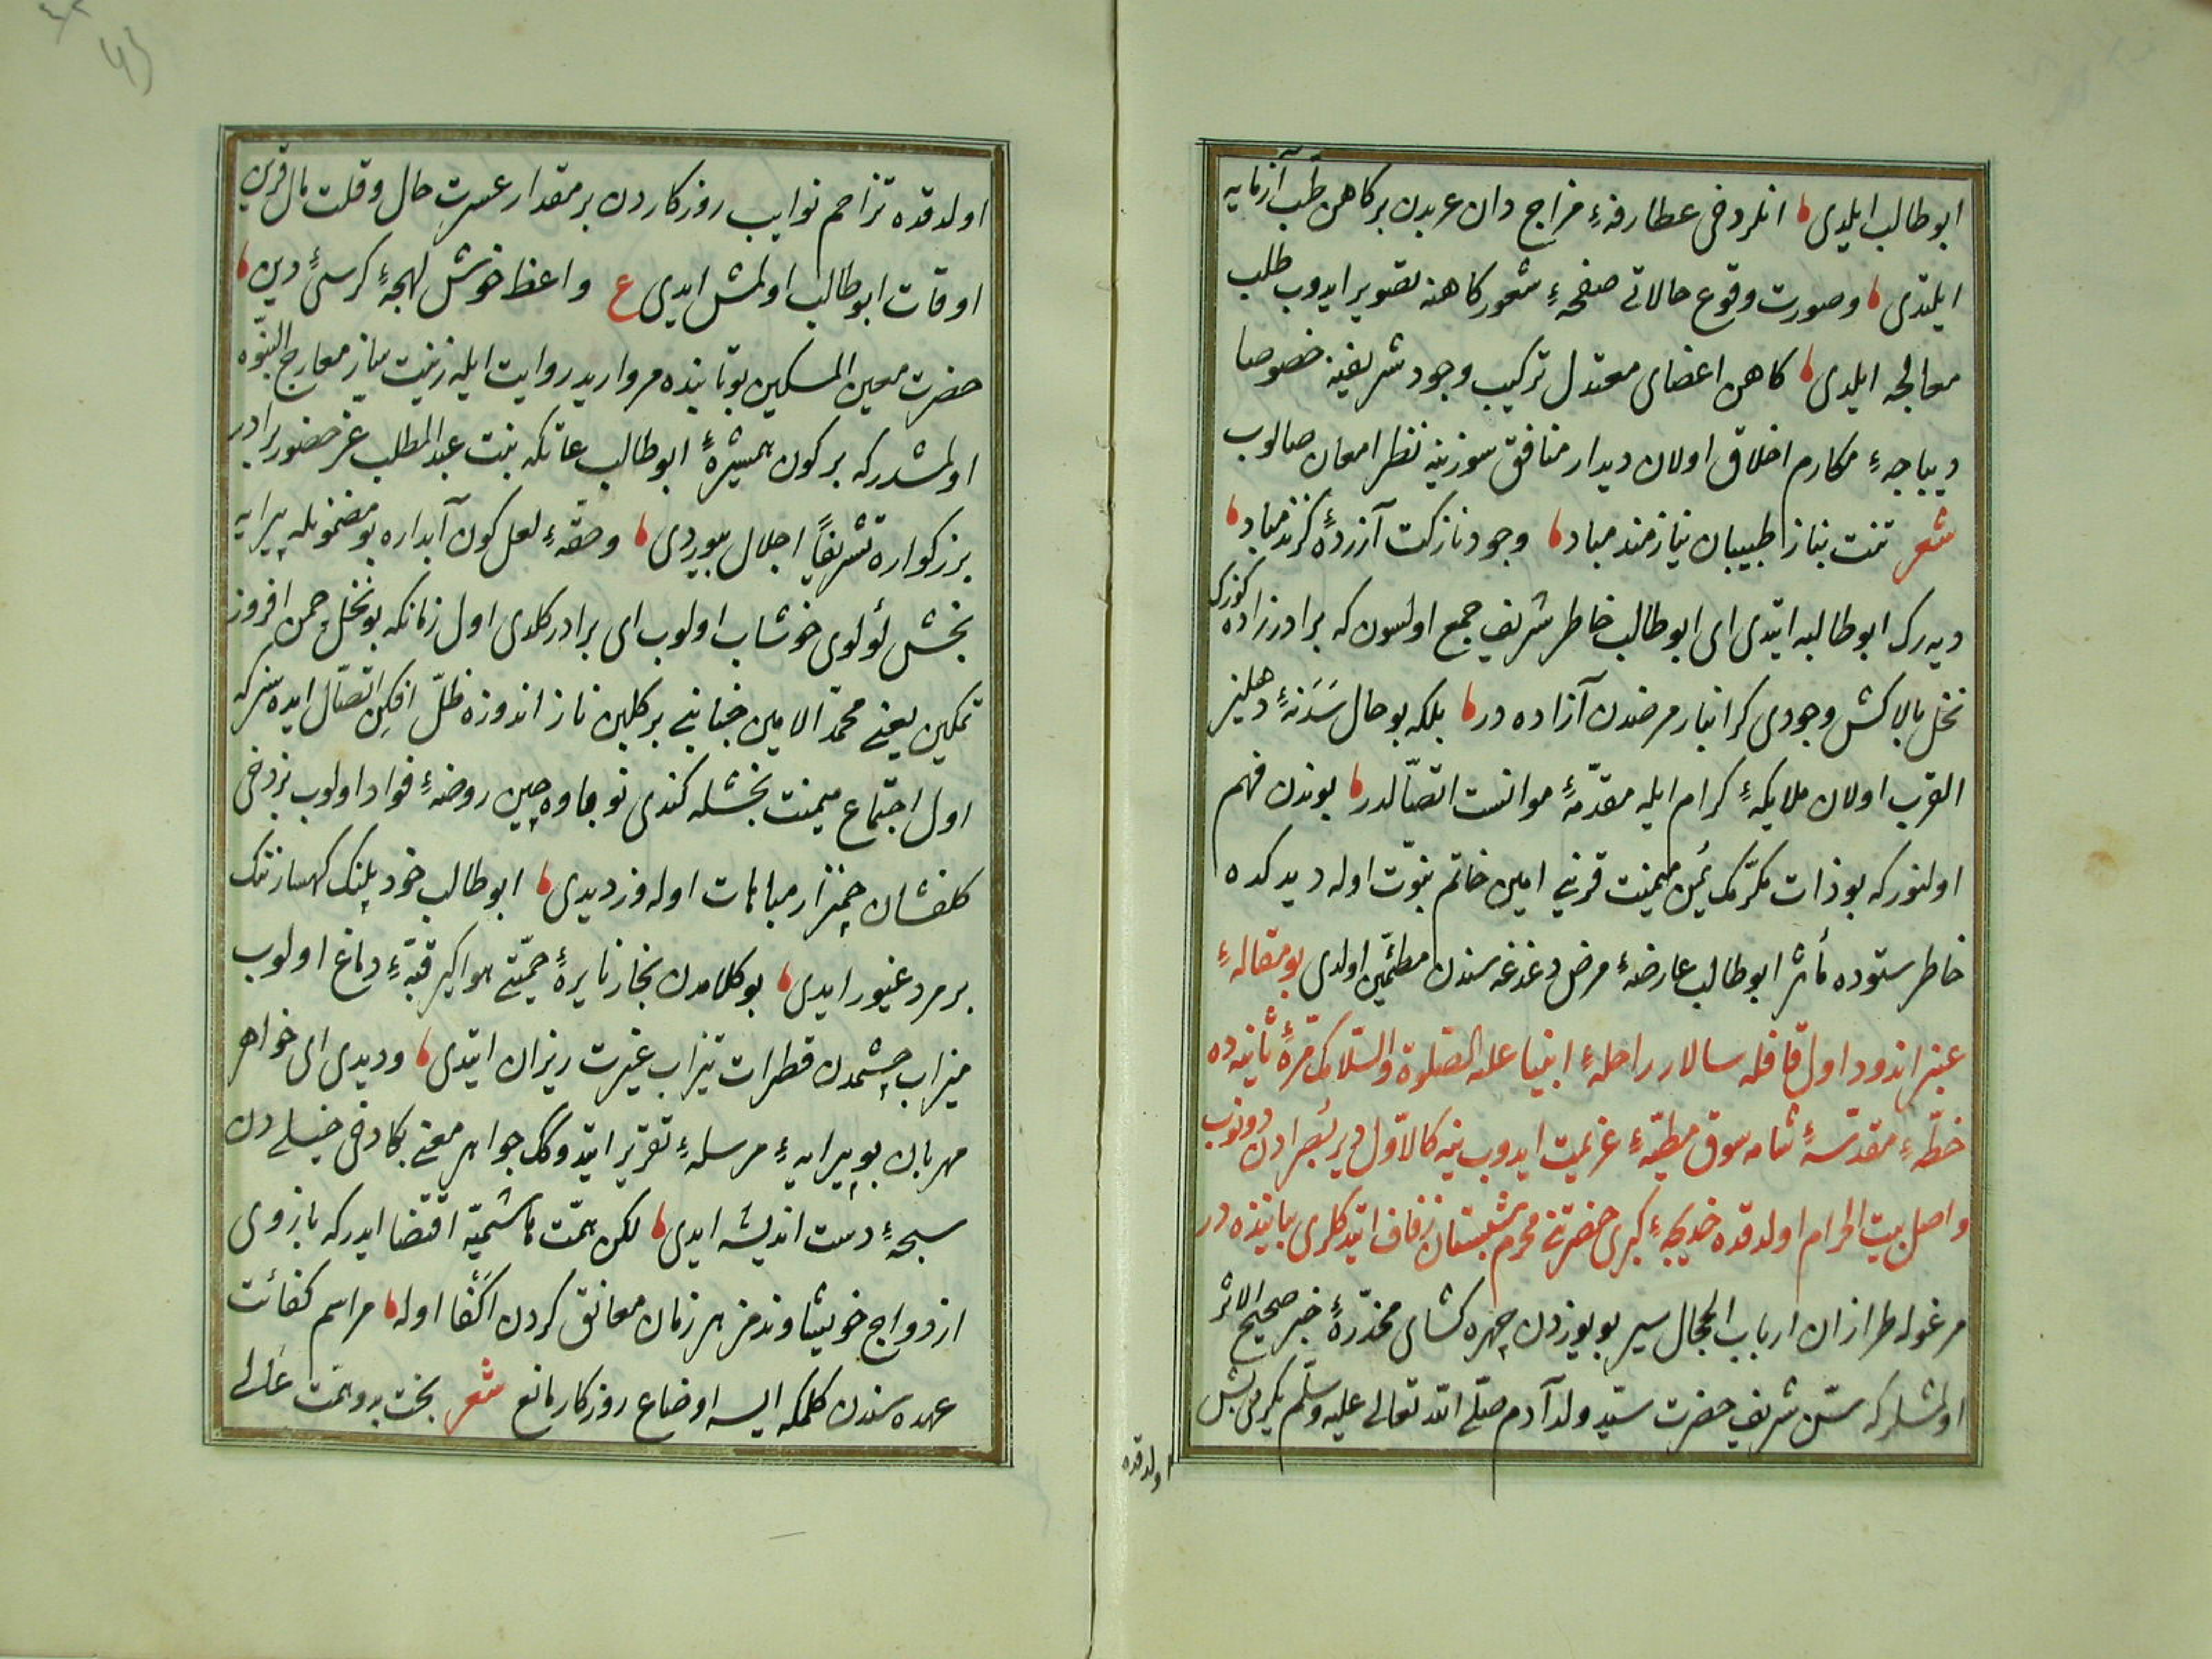 ابو طالب ایلدی انلر دخی عطارفهٔ مزاج دان عربدن بر کاهن طب آزمایه
ایلتدی وصورت وقوع حالاتی صفحهٔ شعور کاهنه تصویر ایدوب طلب
معالجه ایلدی کاهن اعضای معتدل ترکیب وجود شریفنه خصوصا
دیباجهٔ مکارم اخلاق اولان دیدار منافق سوزینه نظر امعان صالوب
شعر تنت بناز طبیبان نیازمند مباد وجود نازکت آزردهٔ کزند مباد
دیه رک ابو طالبه ایتدی ای ابو طالب خاطر شریف جمع اولسون که برادرزاده کوزک
نخل بالاکش وجودی کرانبار مرضدن آزاده در بلکه بو حال سدنهٔ دهلیز
القرب اولان ملایکهٔ کرام ایله مقدمهٔ موانست اتصالدر بوندن فهم
اولنور که بو ذات مکرمک یمن میمنت قرینی امین خاتم نبوت اوله دیدکده
خاطر ستوده مأثر ابو طالب عارضهٔ مرض دغدغه سندن مطمئن اولدی بو مقالهٔ
عنبر اندود اول قافله سالار راحلهٔ انبیا علیه الصلوة والسلامک مرهٔ ثانیه ده
خطهٔ مقدسهٔ شامه سوق مطیهٔ عزیمت ایدوب ینه کالاول دیر بصرادن دونوب
واصل بیت الحرام اولدقده خدیجهٔ کبری حضرتنی محرم شبستان زفاف ایتدکلری بیاننده در
مرغوله طرازان ارباب الحجال سیر بو یوزدن چهره کشای مخدرهٔ خبر صحیح الاثر
اولمشلر که سن شریف حضرت سید ولد آدم صلی الله تعالی علیه وسلم یکرمی بش
اولدقده
اولدقده تزاحم نوایب روزکاردن بر مقدار عسرت حال وقلت مال قرین
اوقات ابو طالب اولمش ایدی ع واعظ خوش لهجهٔ کرسئ دین
حضرت معین المسکین بو تابنده مروارید روایت ایله زینت ساز معارج النبوه
اولمشدر که بر کون همشیرهٔ ابو طالب عاتکه بنت عبد المطلب عز حضور برادر
بزرکواره تشریفاً اجلال بیوردی وحقهٔ لعل کون آبداره بو مضمونله پیرایه
بخش لؤلوی خوشاب اولوب ای برادر کلدی اول زمانکه بو نخل چمن افروز
تمکین یعنی محمد الامین جنابنی بر کلبن ناز اندوزه ظل افکن اتصال ایده سز که
اول اجتماع میمنت بخشله کندی نوباوه چین روضهٔ فواد اولوب بز دخی
کلفشان چمنزار مباهات اوله وز دیدی ابو طالب خود پلنک کهسار ننک
بر مرد غیور ایدی بو کلامدن بخار نایرهٔ حمیتی هواکیر قبهٔ دماغ اولوب
میزاب چشمدن قطرات تیزاب غیرت ریزان ایتدی ودیدی ای خواهر
مهربان بو پیرایهٔ مرسلهٔ تقریر ایتدوکک جواهر معنی بکا دخی خیلی دن
سبحهٔ دست اندیشه ایدی لکن همت هاشمیه اقتضا ایدر که بازوی
ازدواج خویشاوندمز هر زمان معانق کردن اکفا اوله مراسم کفائت
عهده سندن کلمکه ایسه اوضاع روزکار مانع شعر بخت بد وهمت عالی